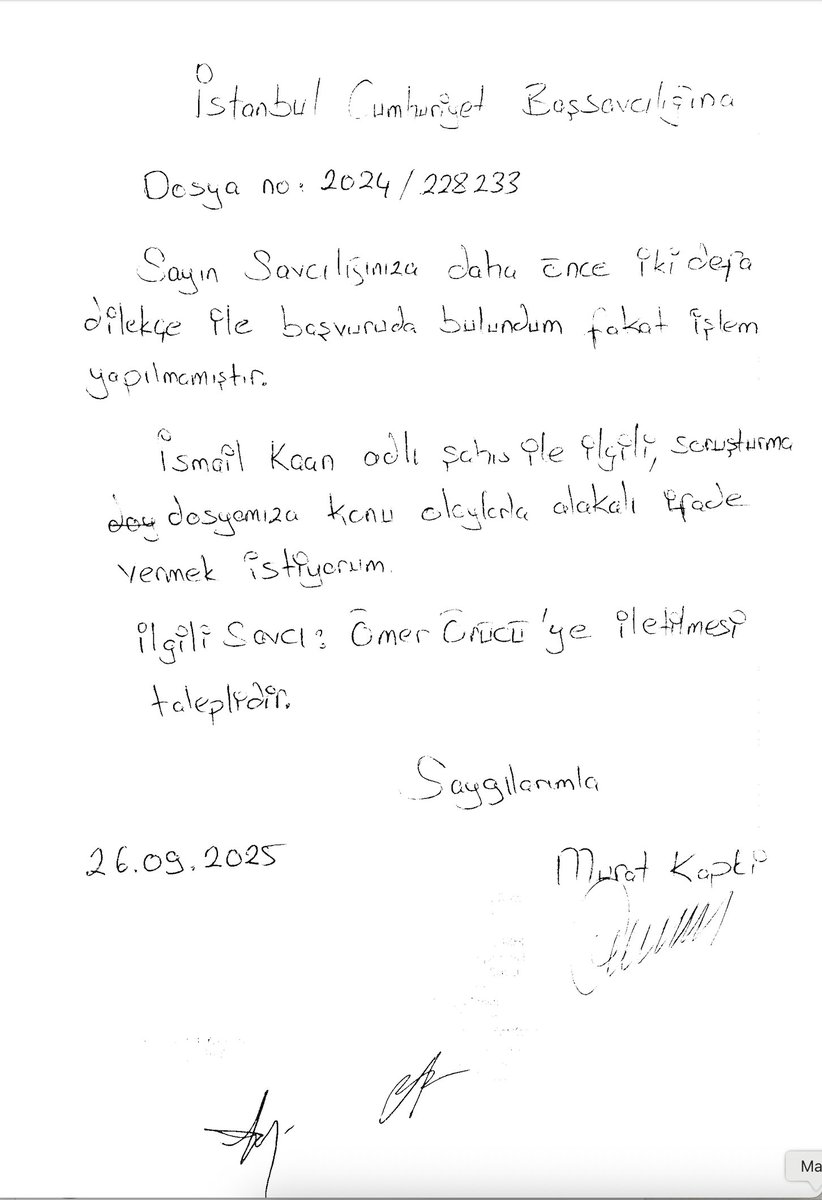 İstanbul Cumhuriyet Başsavcılığına
Dosya no: 2024/228233
Sayın Savcılığınıza daha önce iki defa
dilekçe ile başvuruda bulundum fakat işlem
yapılmamıştır.
İsmail Kaan adlı şahıs ile ilgili, soruşturma
dosyamıza konu olaylarla alakalı ifade
vermek istiyorum.
ilgili Savcı: Ömer Örücü'ye iletilmesi
taleplidir.
Saygılarımla
26.09.2025
Murat Kapki
Ma